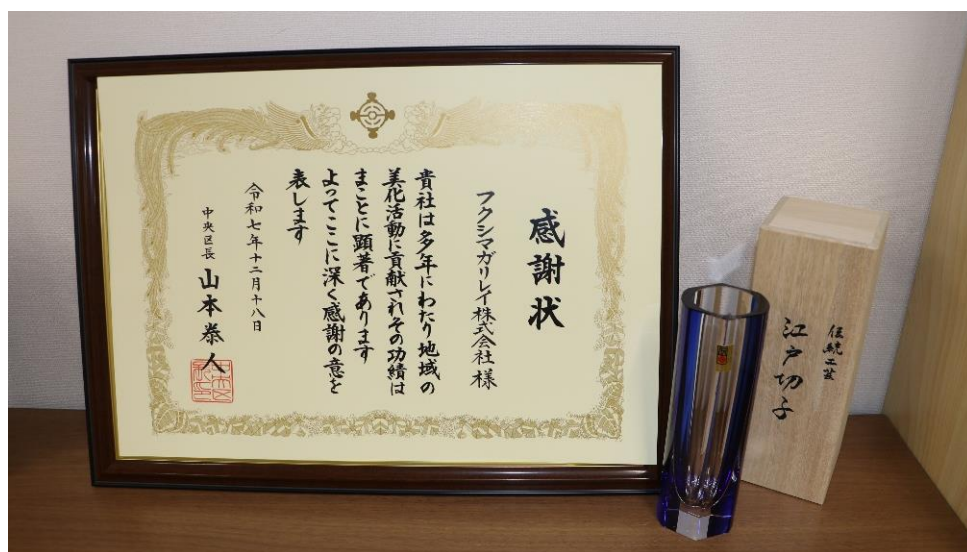 感謝状
フクシマガリレイ株式会社様
貴社は多年にわたり地域の
美化活動に貢献されその功績は
まことに顕著であります
よってここに深く感謝の意を
表します
令和七年十二月十八日
中央区長 山本泰人
伝統工芸
江戸切子